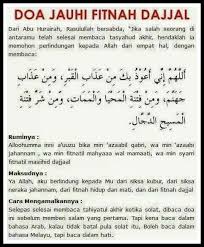 DOA JAUHI FITNAH DAJJAL
Dari Abu Hurairah, Rasulullah bersabda, "Jika salah seorang di
antaramu telah selesai membaca tasyahud akhir, hendaklah ia
memohon perlindungan kepada Allah dari empat hal, dengan
membaca:
اَللَّهُمَّ إِنِّي أَعُوْذُ بِكَ مِنْ عَذَابِ الْقَبْرِ، وَمِنْ عَذَابِ
جَهَنَّمَ، وَمِنْ فِتْنَةِ الْمَحْيَا وَالْمَمَاتِ، وَمِنْ شَرِّ فِتْنَةِ
الْمَسِيْحِ الدَّجَّالِ.
Ruminya :
Alloohumma innii a'uuzu bika min 'azaabil qabri, wa min 'azaabi
jahannam, wa min fitnatil mahyaaa wal mamaati, wa min syarri
fitnatil masiihid dajjaal
Maksudnya :
Ya Allah, aku berlindung kepada Mu dari siksa kubur, dari siksa
neraka jahannam, dari fitnah hidup dan mati, dan dari fitnah dajjal
Cara Mengamalkannya :
Selepas selesai membaca tahiyatul akhir ketika solat, dibaca doa
ini sebelum memberi salam yang pertama. Tapi kena baca dalam
bahasa Arab, kalau tidak batal pula solat tu. Dalam bahasa
Melayu, tapi baca dalam hati.